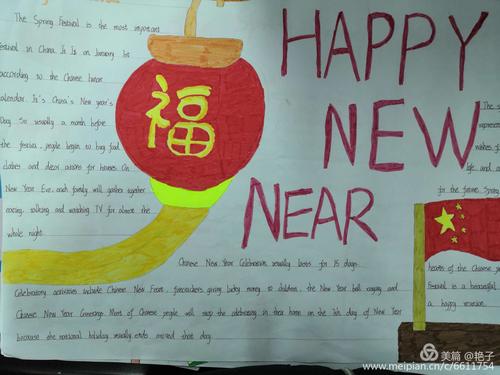 The Spring Festival is the most important
festival in China. It Is on January 1st
according to the Chinese lunar
calendar. It's China's New year's
Day. So usually a month before
the festival, people begin to buy food
clothes and decor ations for homes. On
New Year Eve, each family will gather together
eating, talking and watching TV for almost the
whole night.
福
HAPPY
NEW
NEAR
The s
represen
wishes f
life and a
for the future. Spring
Chinese New Year Celebration usually lasts for 15 days
Celebratory activities include Chinese New Feast, firecrackers giving lucky money to children, the New bell ringing and
Chinese New Year Greetings Most of Chinese people will stop the celebrating in their home on the 7th day of New Year
because the national holiday usually ends around that day.
hearts of the Chinese p
Festival is a beautiful
a happy reunion.
美篇 @艳子
www.meipian.cn/c/6611754